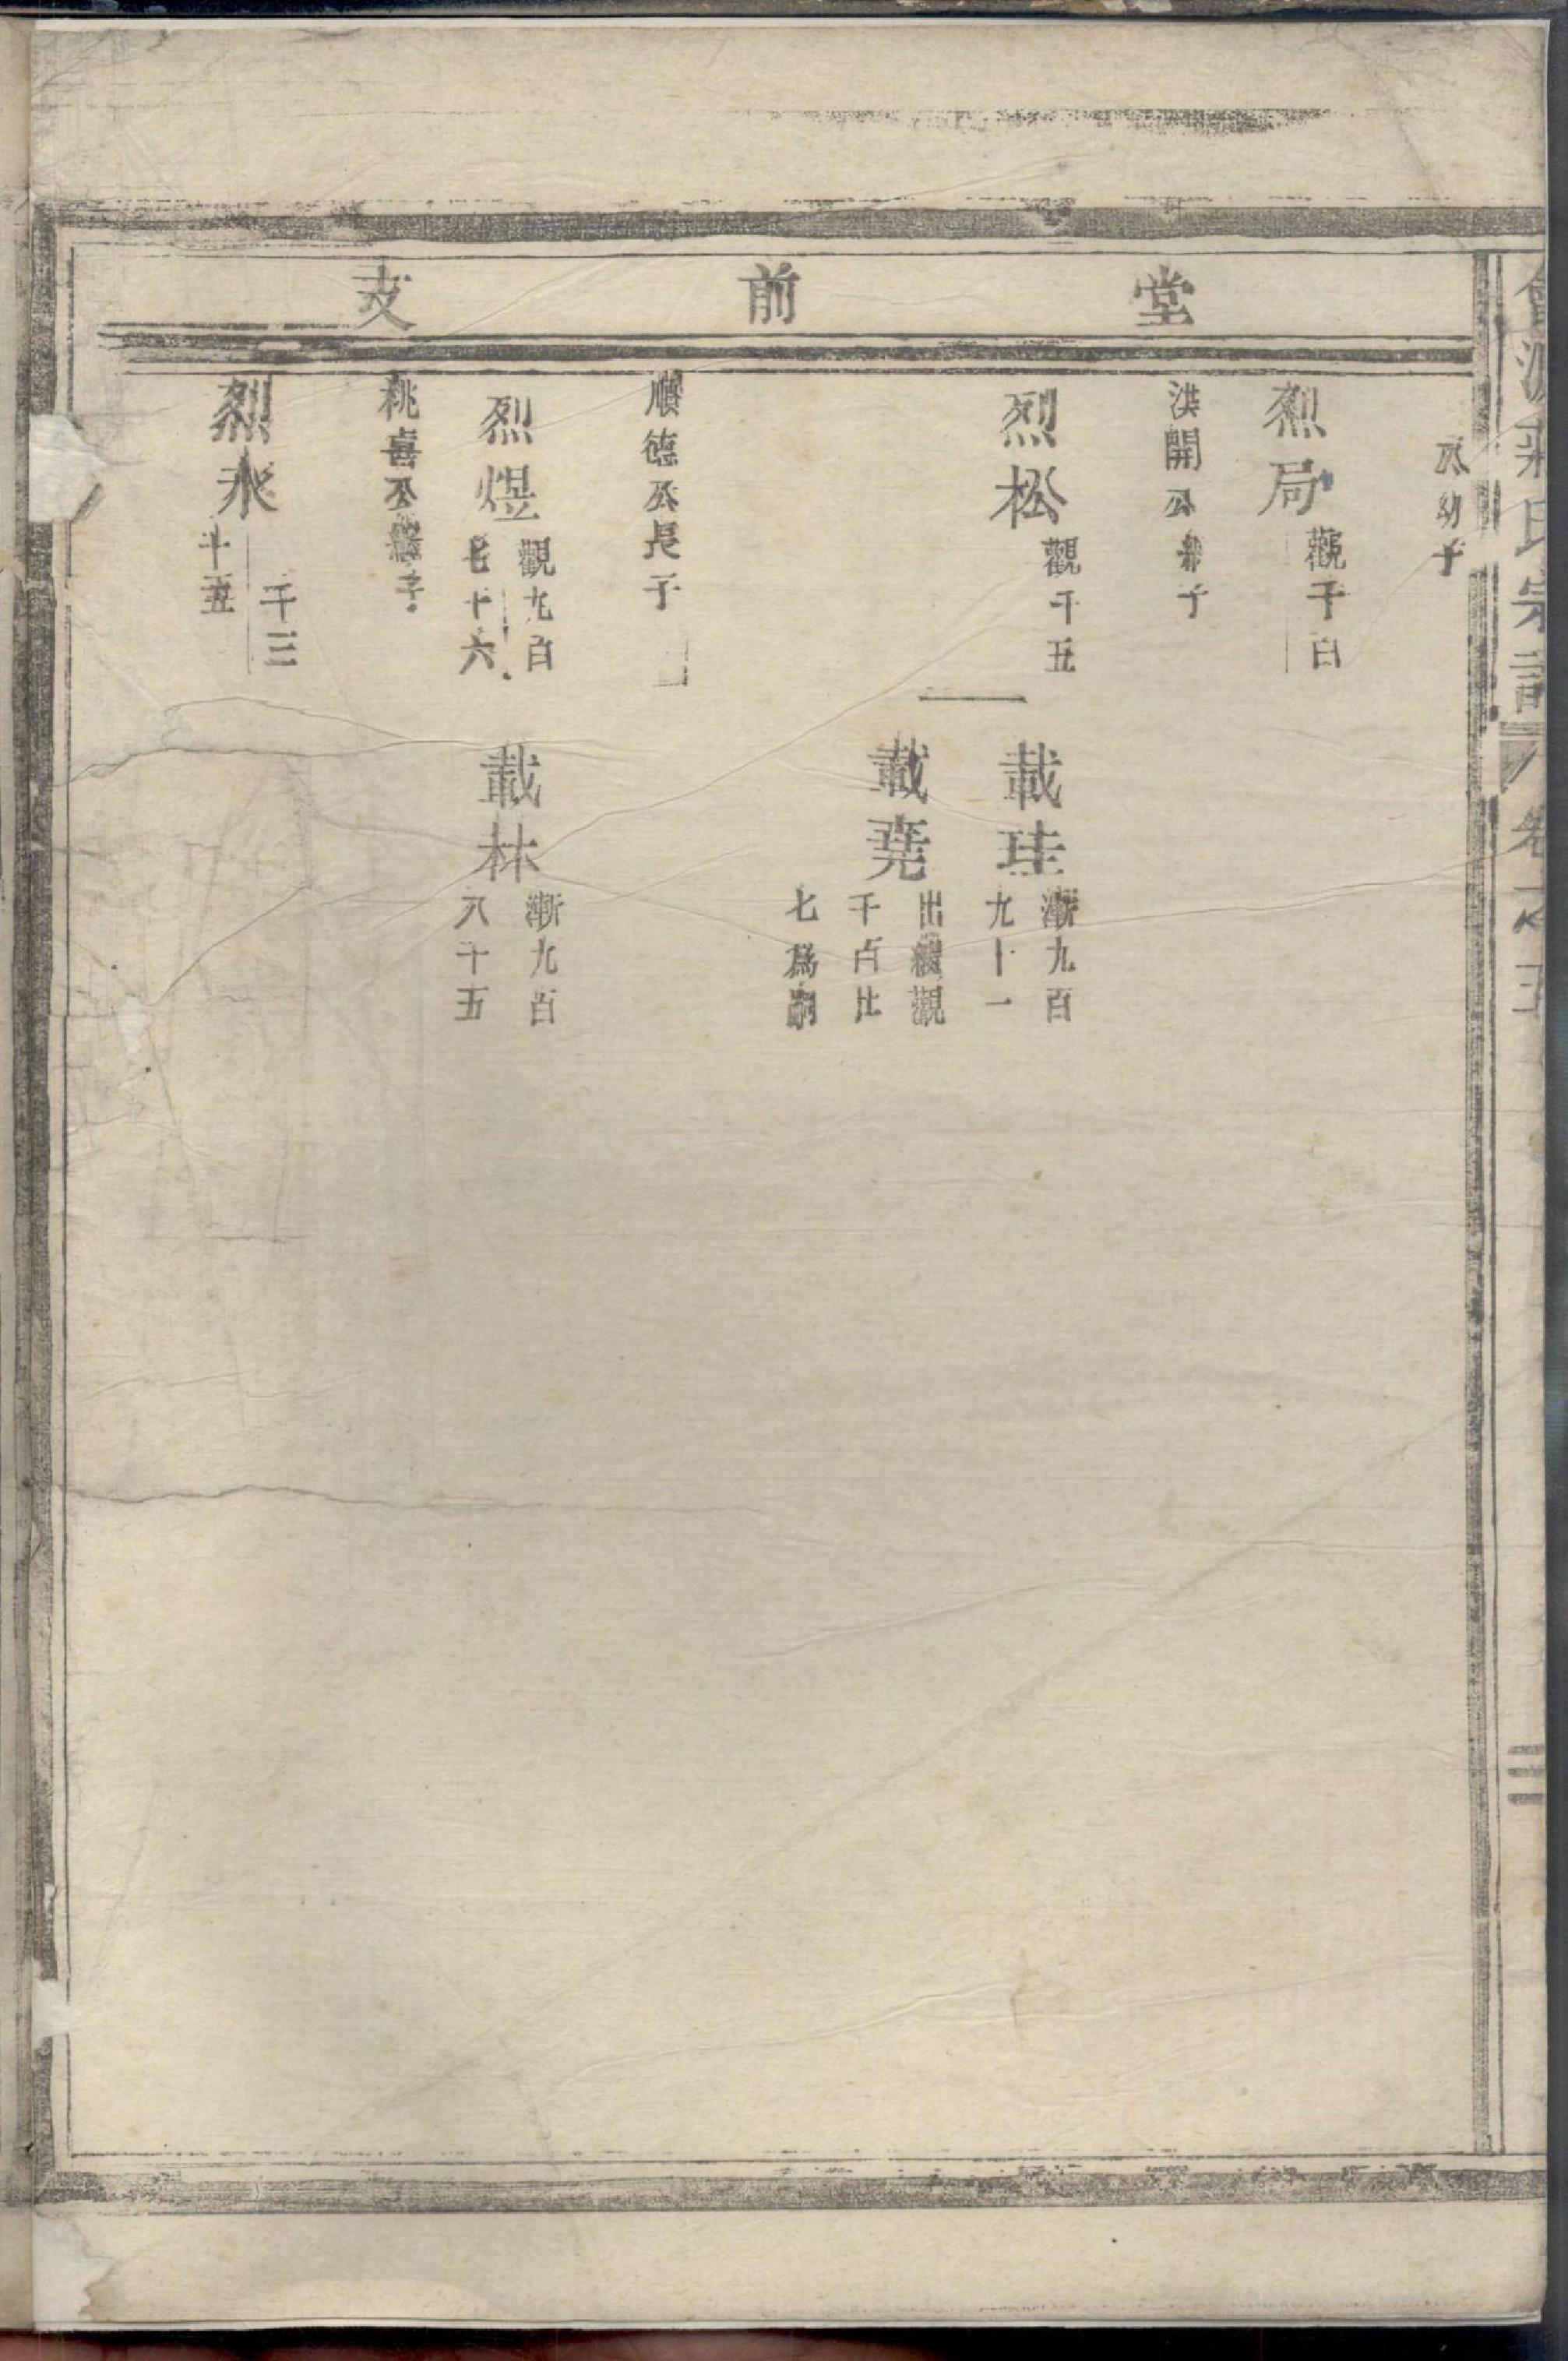 堂前支
公幼子
烈焗
觀千百
洪開公
子
烈松
觀千五
載珪
漸九百
九十一
載堯
出繼觀
千百七
七為嗣
順德公長子
烈煜
觀九百
七十六
載林
漸九百
八十五
桃喜公繼子
烈永
千三
十五
氏宗譜
卷